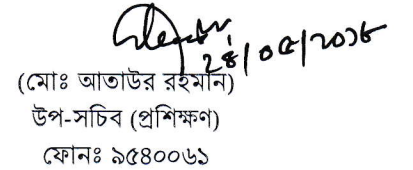 ২৪/০৫/২০১৮
(মোঃ আতাউর রহমান)
উপ-সচিব (প্রশিক্ষণ)
ফোনঃ ৯৫৪০০৬১